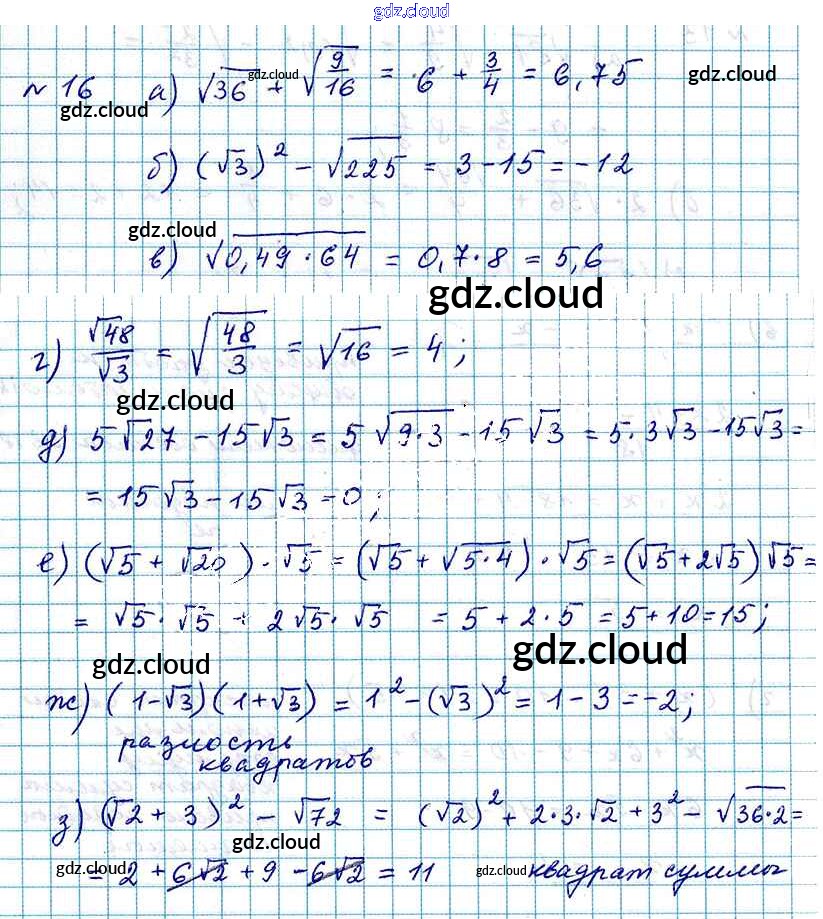 gdz.cloud
№ 16 а) √36 + √(9/16) = 6 + 3/4 = 6,75
gdz.cloud gdz.cloud gdz.cloud
б) (√3)² − √225 = 3 − 15 = −12
gdz.cloud
в) √(0,49 · 64) = 0,7 · 8 = 5,6
gdz.cloud
г) √48/√3 = √(48/3) = √16 = 4;
gdz.cloud
д) 5√27 − 15√3 = 5√(9·3) − 15√3 = 5·3√3 − 15√3 =
= 15√3 − 15√3 = 0;
е) (√5 + √20) · √5 = (√5 + √(5·4)) · √5 = (√5 + 2√5)√5 =
= √5 · √5 + 2√5 · √5 = 5 + 2·5 = 5 + 10 = 15;
gdz.cloud gdz.cloud
ж) (1 − √3)(1 + √3) = 1² − (√3)² = 1 − 3 = −2;
разность
квадратов
з) (√2 + 3)² − √72 = (√2)² + 2·3·√2 + 3² − √(36·2) =
gdz.cloud
= 2 + 6√2 + 9 − 6√2 = 11 квадрат суммы
gdz.cloud gdz.cloud